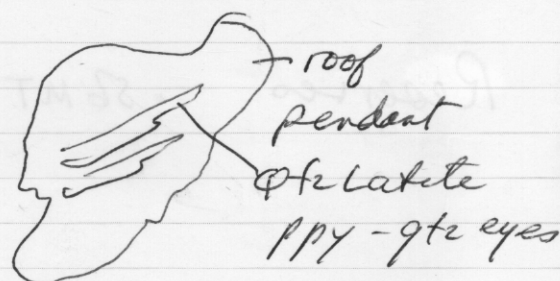 roof
pendant
Qtz Latite
ppy - qtz eyes